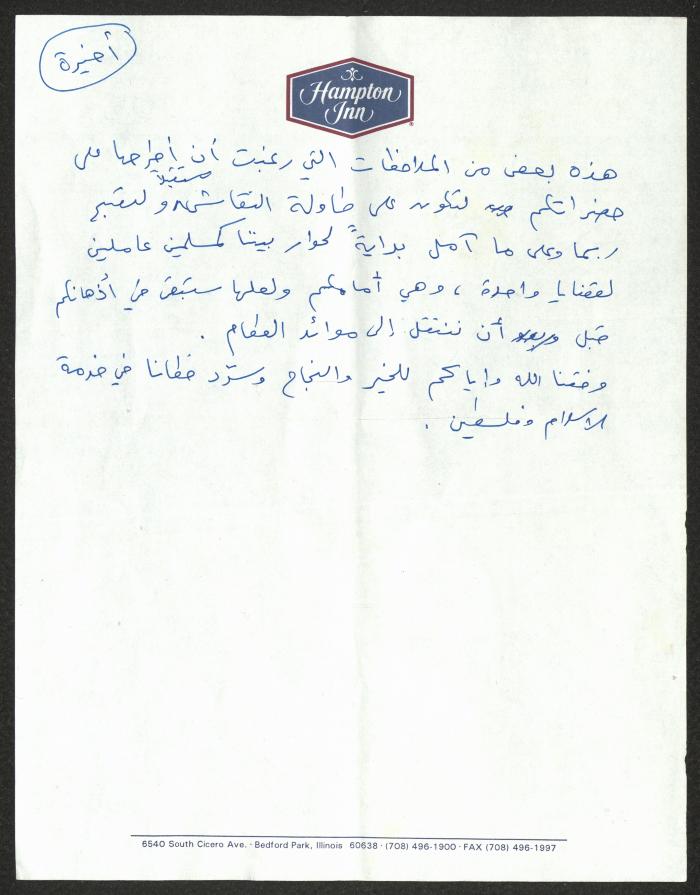 أخيرة
Hampton
Inn
هذه بعض من الملاحظات التي رغبت أن أطرحها على
مستقبلاً
حضراتكم لتكون على طاولة النقاش و لتفتح
ربما وعلى ما آمل بدايةً لحوار بيننا كمسلمين عاملين
لقضايا واحدة ، وهي أمامكم ولعلها ستبقى في أذهانكم
قبل أن ننتقل إلى موائد الطعام .
وفقنا الله وإياكم للخير والنجاح وسدّد خطانا في خدمة
الاسلام وفلسطين .
6540 South Cicero Ave. · Bedford Park, Illinois 60638 · (708) 496-1900 · FAX (708) 496-1997